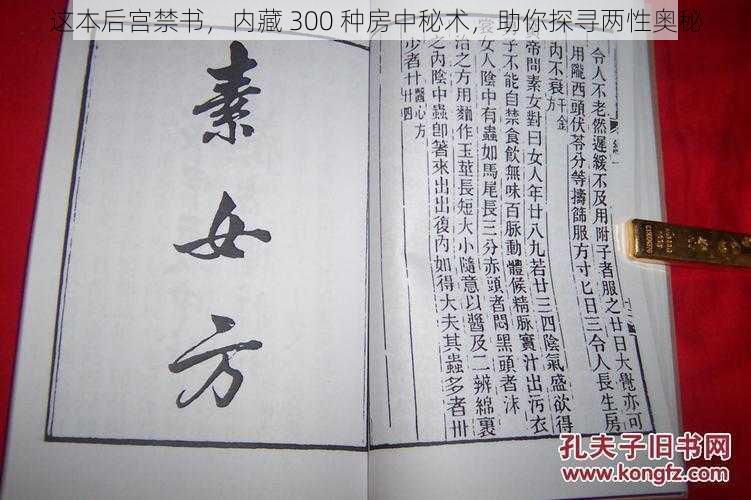 这本后宫禁书，内藏 300 种房中秘术，助你探寻两性奥秘
素女方
令人不老然遲緩不及用附子者服之廿日大覺亦可
用隴西頭伏苓分等擣篩服方寸匕日三令人長生房
內不衰千金
帝問素女對曰女人年廿八九若廿三四陰氣盛欲得
子不能自禁食飲無味百脈動體候精脈實汁出汚衣
裳女人陰中有蟲如馬尾長三分赤頭者悶黑頭者沫
治之方用麵作玉莖長短大小隨意以醬及二辨綿裹
之內陰中蟲卽著來出出復內如得大夫其蟲多者卅
少者廿醫心方
孔夫子旧书网
www.kongfz.com